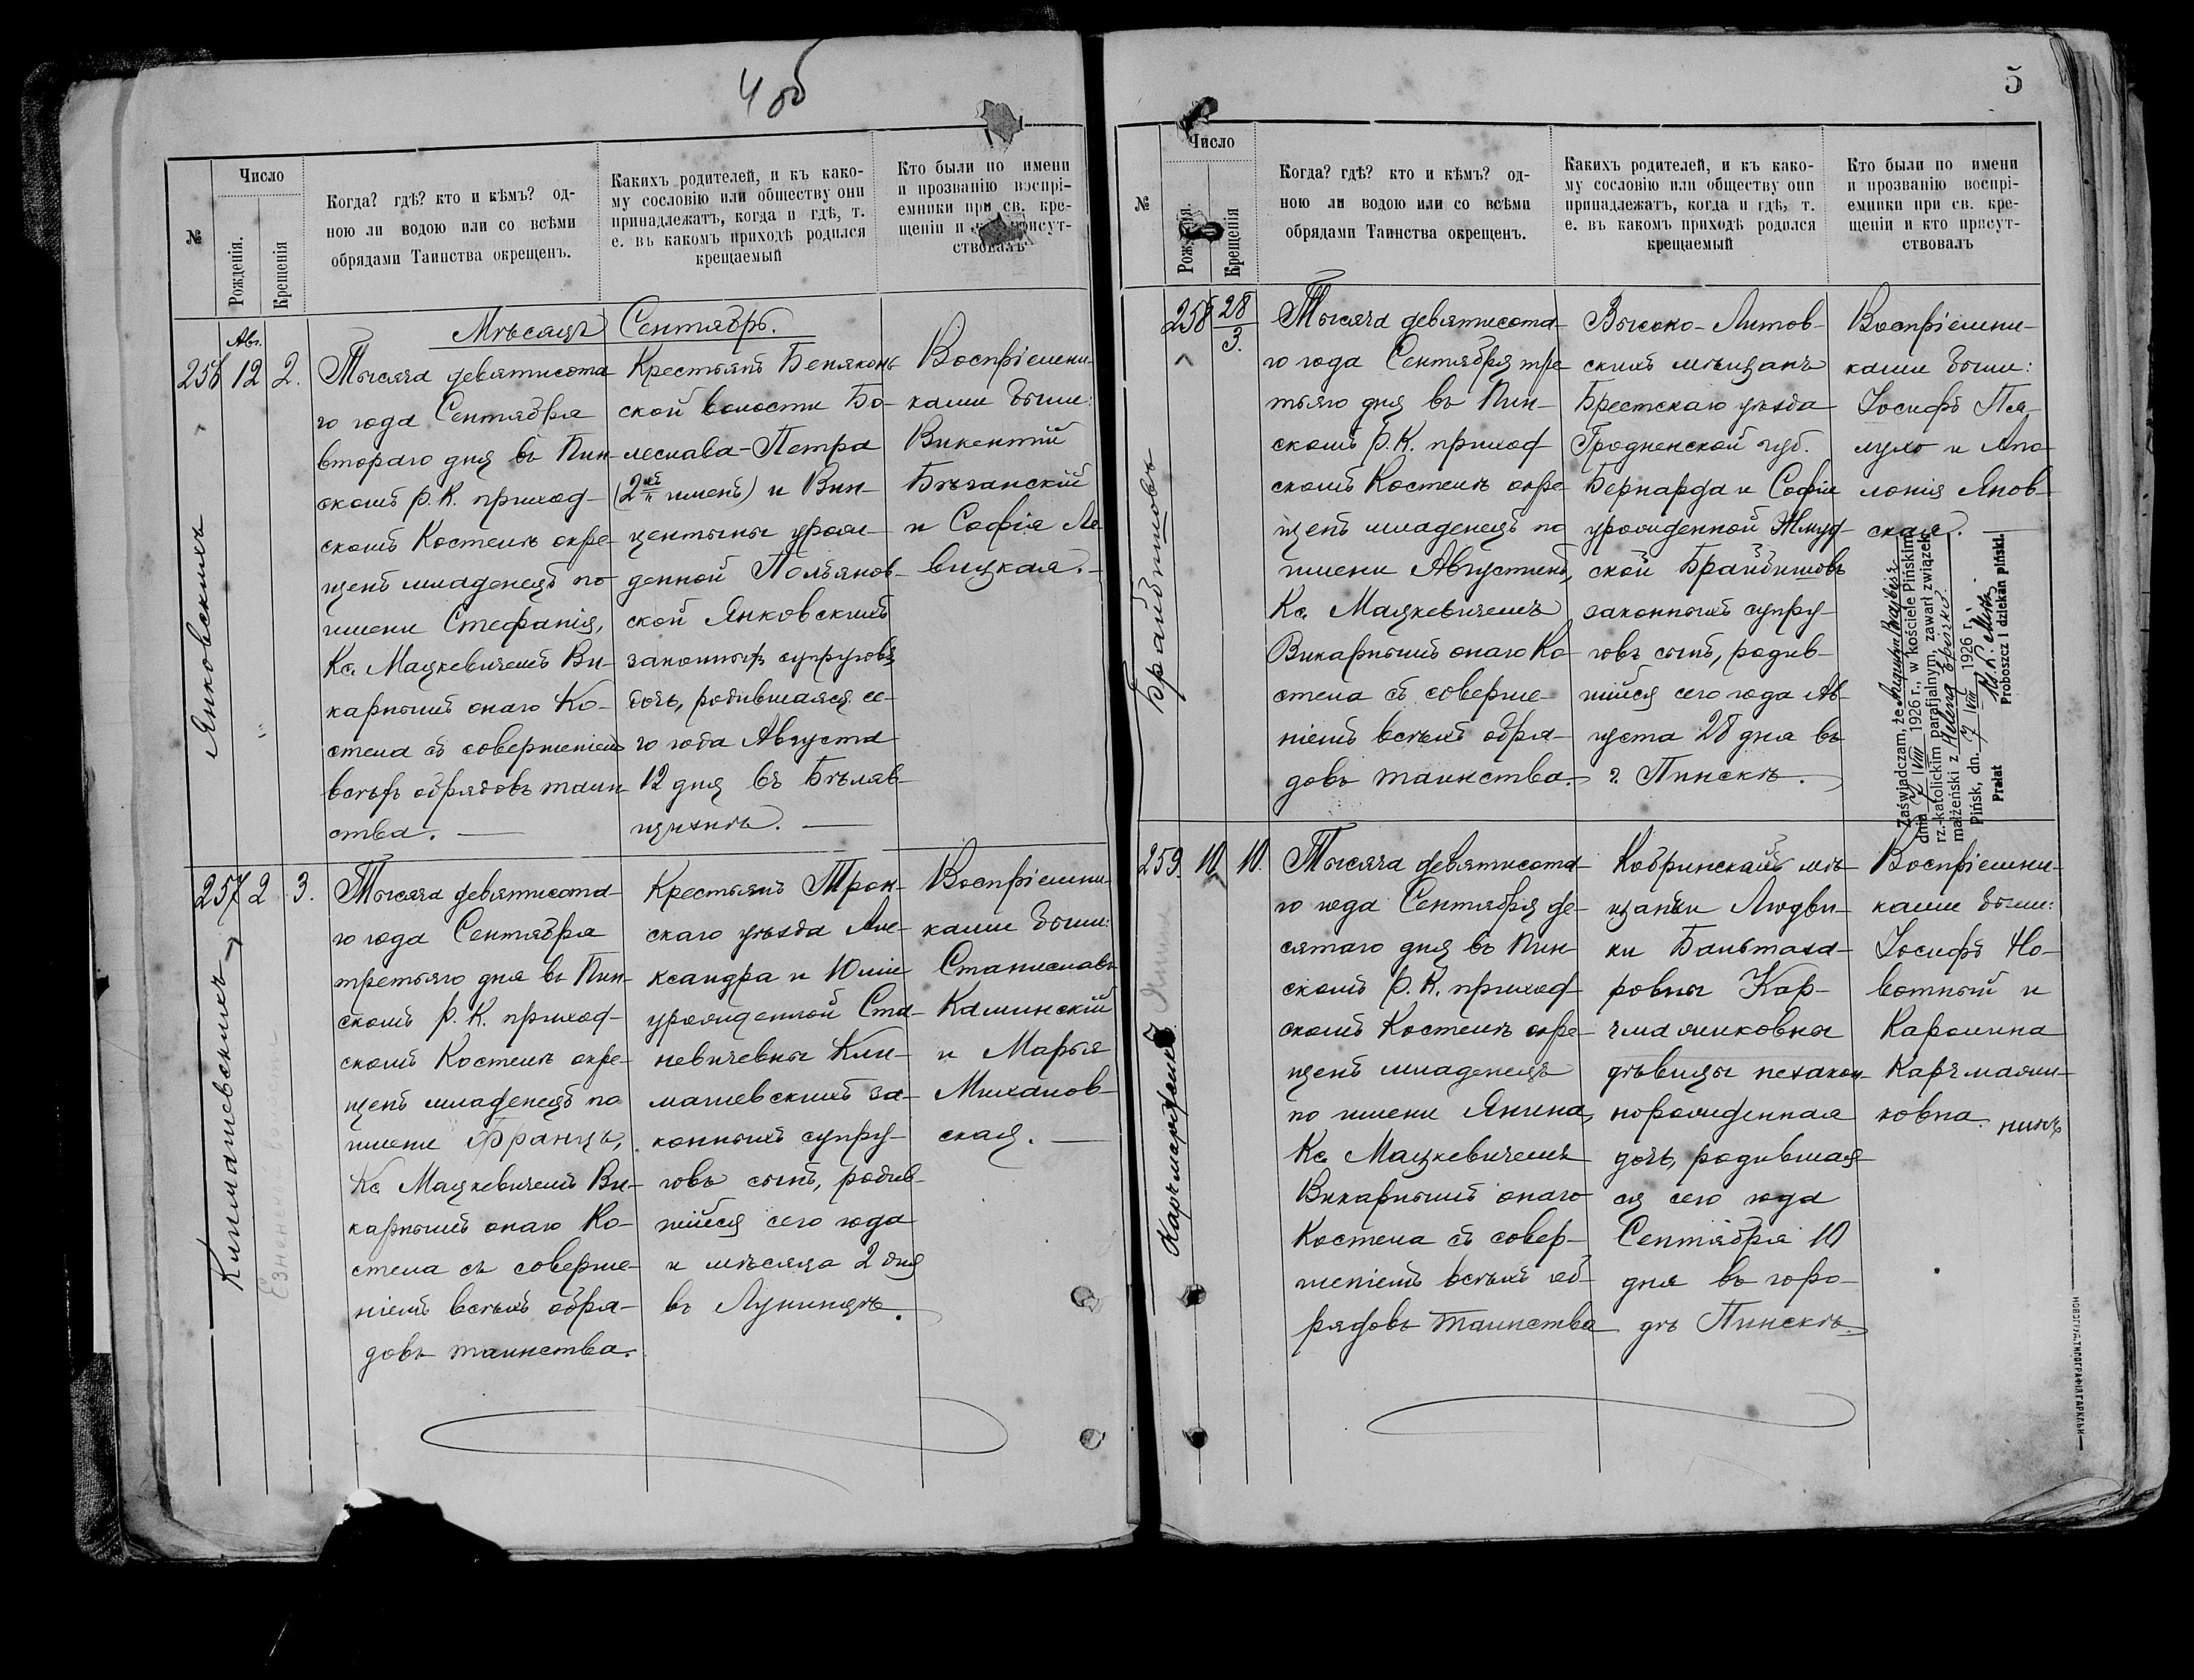 4 об
№
Число
Рожденія.
Крещенія
Когда? гдѣ? кто и кѣмъ? од-
ною ли водою или со всѣми
обрядами Таинства окрещенъ.
Какихъ родителей, и къ како-
му сословію или обществу они
принадлежатъ, когда и гдѣ, т.
е. въ какомъ приходѣ родился
крещаемый
Кто были по имени
и прозванію воспрі-
емники при св. кре-
щеніи и
ствовалъ
Мѣсяцъ Сентябрь.
256
Авг.
12
2.
Янковскихъ
Тысяча девятисота-
го года Сентября
втораго дня въ Пин-
скомъ Р. К. приход-
скомъ Костелѣ окре-
щенъ младенецъ по
имени Стефанія,
Кс. Мацкевичемъ Ви-
карнымъ онаго Ко-
стела съ совершеніемъ
всѣхъ обрядовъ таин-
ства.
Крестьянъ Бенякон-
ской волости Бо-
леслава-Петра
(2хъ именъ) и Вин-
центыны урож-
денной Польянов-
ской Янковскихъ
законныхъ супруговъ
дочь, родившаяся се-
го года Августа
12 дня въ
Воспріемни-
ками были:
Викентій
и Софія Ле-
вицкая.
257
2
3.
Климашевскихъ
Тысяча девятисота-
го года Сентября
третьяго дня въ Пин-
скомъ Р. К. приход-
скомъ Костелѣ окре-
щенъ младенецъ по
имени Францъ,
Кс. Мацкевичемъ Ви-
карнымъ онаго Ко-
стела съ соверше-
ніемъ всѣхъ обря-
довъ таинства.
Крестьянъ Трок-
скаго уѣзда Але-
ксандра и Юліи
урожденной Ста-
невичевны Кли-
машевскихъ за-
конныхъ супру-
говъ сынъ, родив-
шійся сего года
и мѣсяца 2 дня
въ Лунинцѣ.
Воспріемни-
ками были:
Станиславъ
Каминскій
и Марья
Михалов-
ская.
5
№
Число
Рожденія.
Крещенія
Когда? гдѣ? кто и кѣмъ? од-
ною ли водою или со всѣми
обрядами Таинства окрещенъ.
Какихъ родителей, и къ како-
му сословію или обществу они
принадлежатъ, когда и гдѣ, т.
е. въ какомъ приходѣ родился
крещаемый
Кто были по имени
и прозванію воспрі-
емники при св. кре-
щеніи и кто присут-
ствовалъ
258
28
3.
Брайбишовъ
Тысяча девятисота-
го года Сентября тре-
тьяго дня въ Пин-
скомъ Р. К. приход-
скомъ Костелѣ окре-
щенъ младенецъ по
имени Августинъ,
Кс. Мацкевичемъ
Викарнымъ онаго Ко-
стела съ соверше-
ніемъ всѣхъ обря-
довъ таинства.
Высоко-Литов-
скихъ мѣщанъ
Брестскаго уѣзда
Гродненской губ.
Бернарда и Софіи
урожденной Жмуд-
ской Брайбишовъ
законныхъ супру-
говъ сынъ, родив-
шійся сего года Ав-
густа 28 дня въ
г. Пинскѣ.
Воспріемни-
ками были:
Іосифъ
и Апо-
лонія Янов-
ская.
Zaświadczam, że
dnia 7 VIII 1926 r., w kościele Pińskim
rz.-katolickim parafjalnym, zawarł związek
małżeński z Heleną
Pińsk, dn. 7 VIII 1926 r.
Prałat
Proboszcz i dziekan piński.
259.
10
10.
Янина
Тысяча девятисота-
го года Сентября де-
сятаго дня въ Пин-
скомъ Р. К. приход-
скомъ Костелѣ окре-
щенъ младенецъ
по имени Янина,
Кс. Мацкевичемъ
Викарнымъ онаго
Костела съ совер-
шеніемъ всѣхъ об-
рядовъ таинства
Кобринской мѣ-
щанки Людви-
ки Бальтаза-
ровны Кар-
чмажиковны
дѣвицы незакон-
норожденная
дочь, родившая-
ся сего года
Сентября 10
дня въ горо-
дѣ Пинскѣ.
Воспріемни-
ками были:
Іосифъ Но-
вотный и
Каролина
Карчмажи-
ковна.